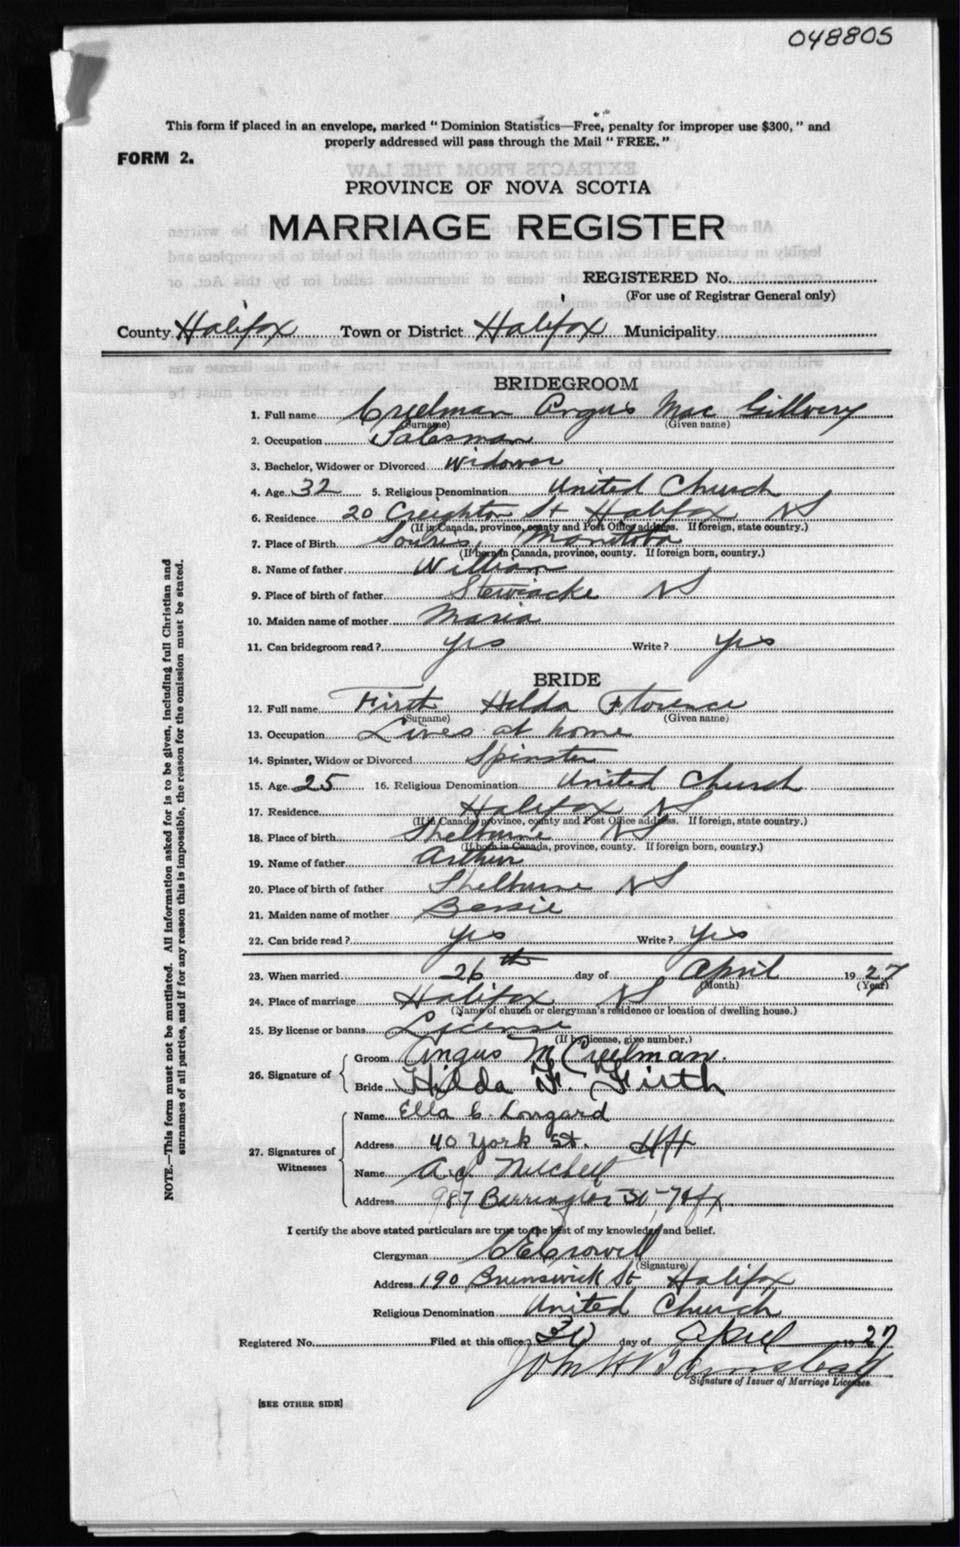 048805
This form if placed in an envelope, marked " Dominion Statistics—Free, penalty for improper use $300, " and
properly addressed will pass through the Mail " FREE. "
FORM 2.
PROVINCE OF NOVA SCOTIA
MARRIAGE REGISTER
REGISTERED No.
(For use of Registrar General only)
County Halifax Town or District Halifax Municipality
BRIDEGROOM
1. Full name Creelman Angus Mac Gillvery
(Surname) (Given name)
2. Occupation Salesman
3. Bachelor, Widower or Divorced widower
4. Age 32 5. Religious Denomination United Church
6. Residence 20 Creighton St Halifax NS
(If in Canada, province, county and Post Office address. If foreign, state country.)
7. Place of Birth Souris, Manitoba
(If born in Canada, province, county. If foreign born, country.)
8. Name of father William
9. Place of birth of father Stewiacke NS
10. Maiden name of mother Maria
11. Can bridegroom read? yes Write? yes
BRIDE
12. Full name Firth Hilda Florence
(Surname) (Given name)
13. Occupation Lives at home
14. Spinster, Widow or Divorced Spinster
15. Age 25 16. Religious Denomination United Church
17. Residence Halifax NS
(If in Canada, province, county and Post Office address. If foreign, state country.)
18. Place of birth Shelburne NS
(If born in Canada, province, county. If foreign born, country.)
19. Name of father Arthur
20. Place of birth of father Shelburne NS
21. Maiden name of mother Bessie
22. Can bride read? yes Write? yes
23. When married 26th day of April 1927
(Month) (Year)
24. Place of marriage Halifax NS
(Name of church or clergyman's residence or location of dwelling house.)
25. By license or banns License
(If by license, give number.)
26. Signature of Groom Angus M Creelman.
Bride Hilda F. Firth
27. Signatures of Witnesses Name Ella C. Longard
Address 40 York St. Hfx
Name A. J. Mitchell
Address 987 Barrington St - Hfx
I certify the above stated particulars are true to the best of my knowledge and belief.
Clergyman C E Crowell
(Signature)
Address 190 Brunswick St Halifax
Religious Denomination United Church
Registered No. Filed at this office 30 day of April 1927
John H
Signature of Issuer of Marriage Licenses.
[SEE OTHER SIDE]
NOTE.—This form must not be mutilated. All information asked for is to be given, including full Christian and
surnames of all parties, and if for any reason this is impossible, the reason for the omission must be stated.